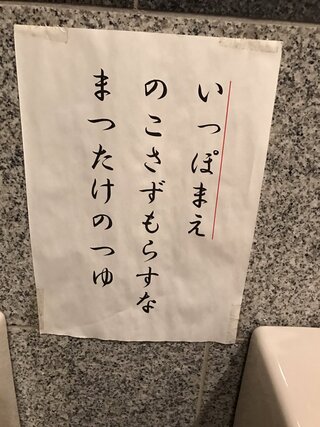 いっぽまえ
のこさずもらすな
まつたけのつゆ